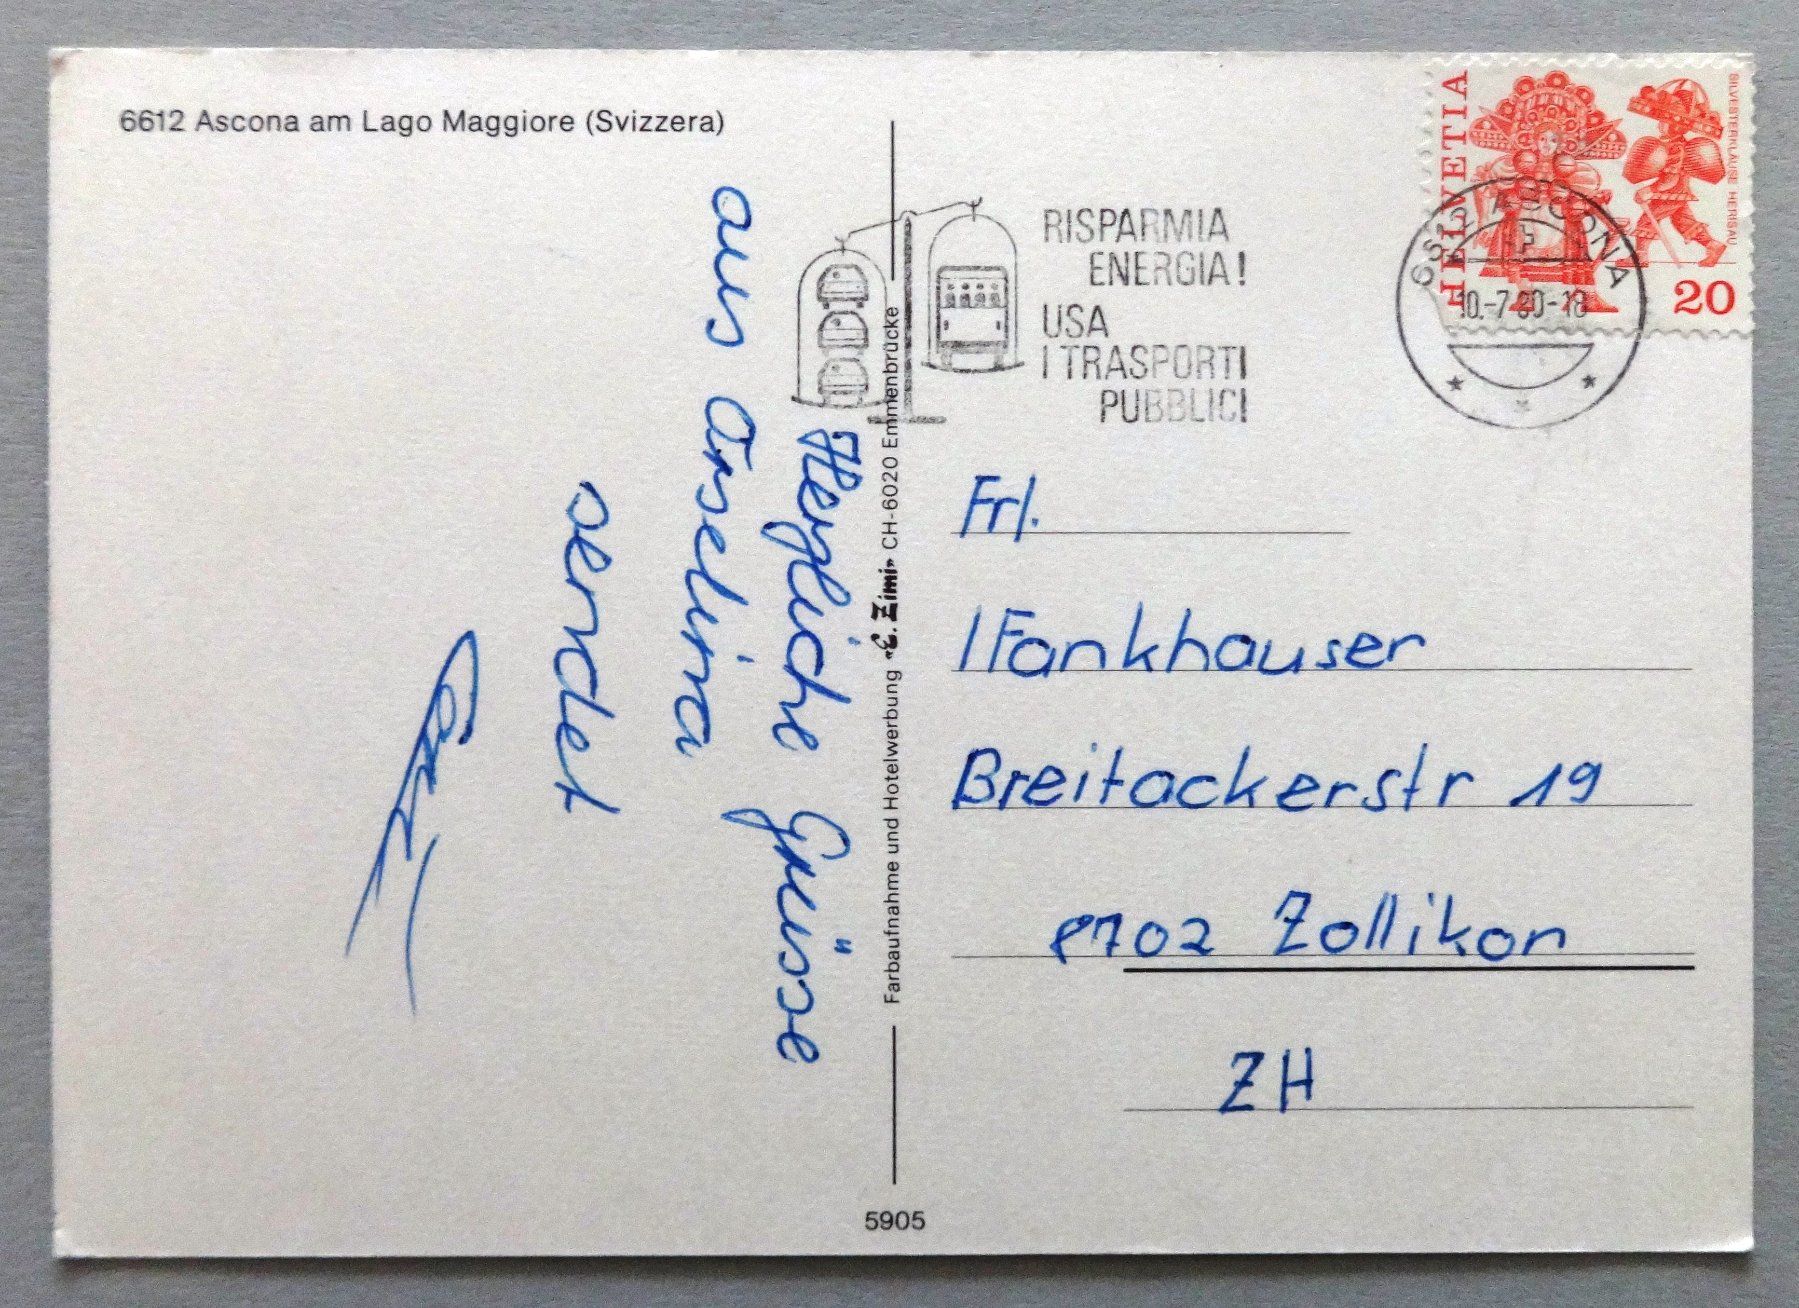 6612 Ascona am Lago Maggiore (Svizzera)
Herzliche Grüsse
aus
sendet
Farbaufnahme und Hotelwerbung «E. Zimi» CH-6020 Emmenbrücke
5905
RISPARMIA
ENERGIA!
USA
I TRASPORTI
PUBBLICI
HELVETIA
SILVESTERKLÄUSE HERISAU
20
6612 ASCONA
10.-7.80-18
Frl.
Fankhauser
Breitackerstr 19
8702 Zollikon
ZH